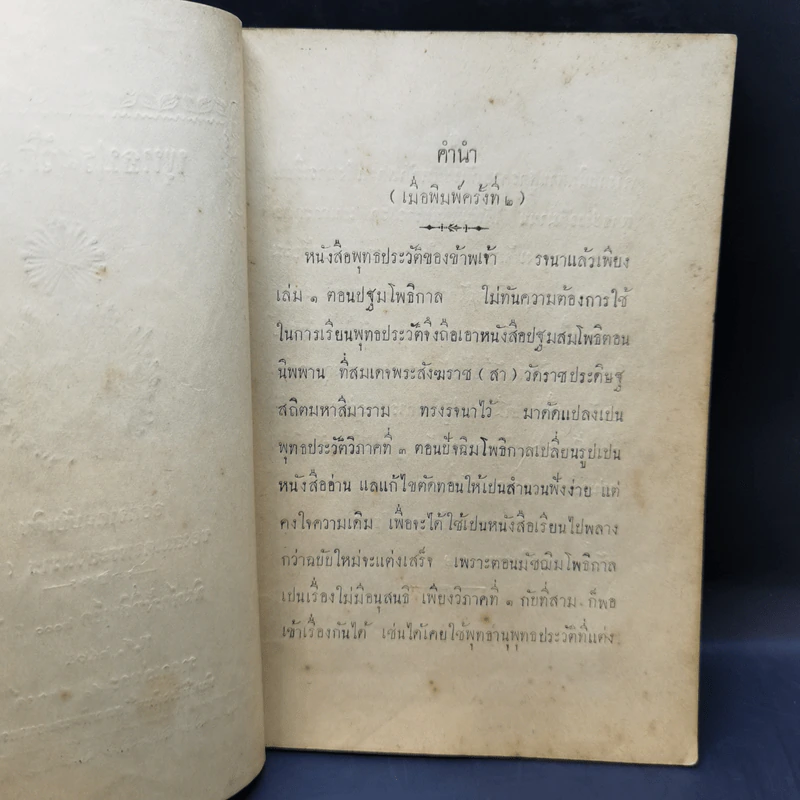 คำนำ
(เมื่อพิมพ์ครั้งที่ ๒)
หนังสือพุทธประวัติของข้าพเจ้า รจนาแล้วเพียง
เล่ม ๑ ตอนปฐมโพธิกาล ไม่ทันความต้องการใช้
ในการเรียนพุทธประวัติจึ่งถือเอาหนังสือปฐมสมโพธิตอน
นิพพาน ที่สมเดจพระสังฆราช (สา) วัดราชประดิษฐ
สถิตมหาสิมาราม ทรงรจนาไว้ มาดัดแปลงเปน
พุทธประวัติวิภาคที่ ๓ ตอนปัจฉิมโพธิกาลเปลี่ยนรูปเปน
หนังสืออ่าน แลแก้ไขตัดทอนให้เปนสำนวนฟังง่าย แต่
คงใจความเดิม เพื่อจะได้ใช้เปนหนังสือเรียนไปพลาง
กว่าฉบับใหม่จะแต่งเสร็จ เพราะตอนมัชฌิมโพธิกาล
เปนเรื่องไม่มีอนุสนธิ เพียงวิภาคที่ ๑ กับที่สาม ก็พอ
เข้าเรื่องกันได้ เช่นได้เคยใช้พุทธานุพุทธประวัติที่แต่ง